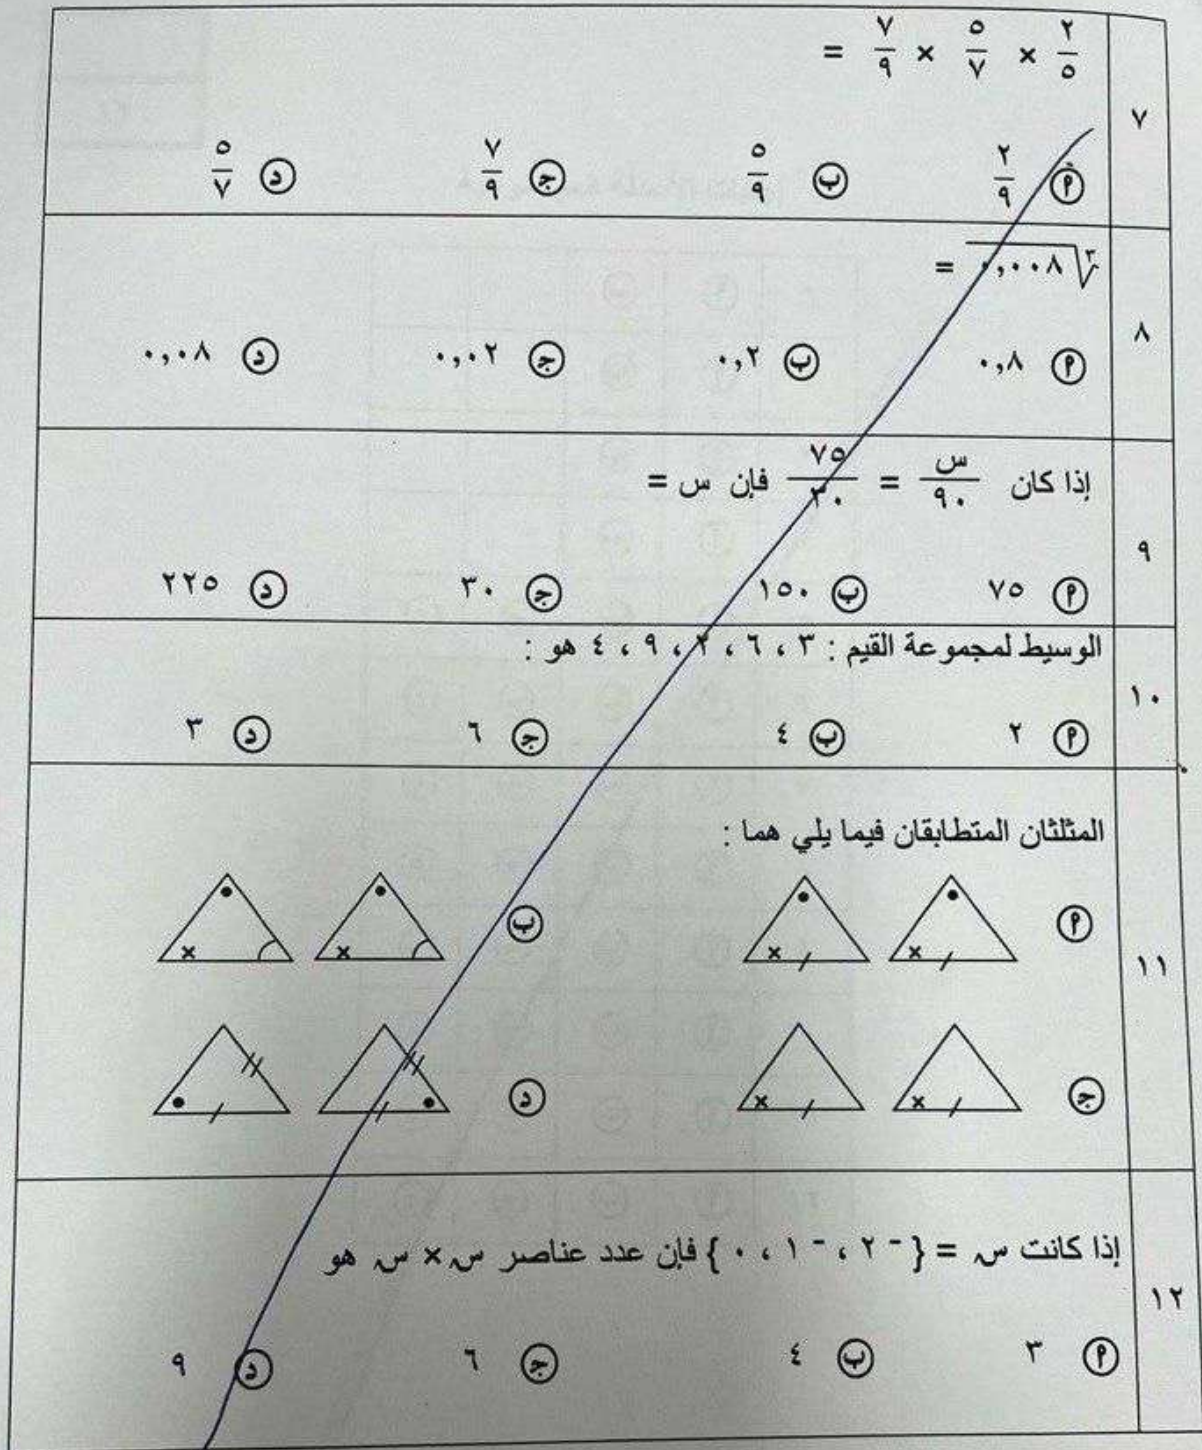 ٧
٢/٥ × ٥/٧ × ٧/٩ =
أ ٢/٩ ب ٥/٩ ج ٧/٩ د ٥/٧
٨
∛٠,٠٠٨ =
أ ٠,٨ ب ٠,٢ ج ٠,٠٢ د ٠,٠٨
٩
إذا كان س/٩٠ = ٧٥/٣٠ فإن س =
أ ٧٥ ب ١٥٠ ج ٣٠ د ٢٢٥
١٠
الوسيط لمجموعة القيم : ٣ ، ٦ ، ٢ ، ٩ ، ٤ هو :
أ ٢ ب ٤ ج ٦ د ٣
١١
المثلثان المتطابقان فيما يلي هما :
أ ب
ج د
١٢
إذا كانت س = { -٢ ، -١ ، ٠ } فإن عدد عناصر س × س هو
أ ٣ ب ٤ ج ٦ د ٩